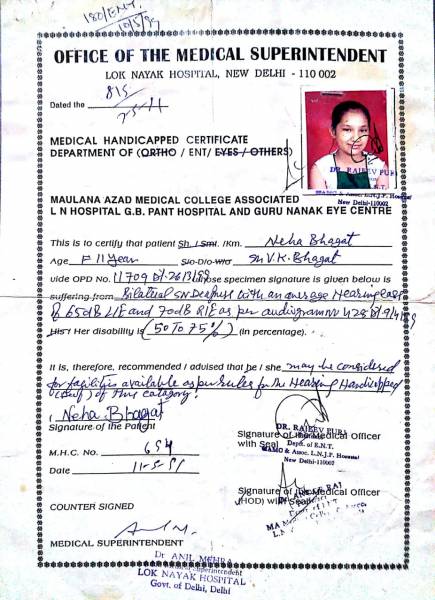 180/ENT
OFFICE OF THE MEDICAL SUPERINTENDENT
LOK NAYAK HOSPITAL, NEW DELHI - 110 002
Dated the
MEDICAL HANDICAPPED CERTIFICATE
DEPARTMENT OF (ORTHO / ENT/ EYES / OTHERS)
DR. RAJEEV PURI
New Delhi-110002
MAULANA AZAD MEDICAL COLLEGE ASSOCIATED
L N HOSPITAL G.B. PANT HOSPITAL AND GURU NANAK EYE CENTRE
This is to certify that patient Sh. / Smt. /Km. Neha Bhagat
Age F 11 Year S/o D/o W/o Sh V.K. Bhagat
vide OPD No. 11709 whose specimen signature is given below is
suffering from Bilateral SN Deafness with an average Hearing loss
of 65dB L/E and 70dB R/E as per audiogram no 428
His / Her disability is (50 To 75%) (in percentage).
It is, therefore, recommended / advised that he / she may be considered
for facilities available as per rules for the Hearing Handicapped
(Deaf) of this catagory.
Neha Bhagat
Signature of the Patient
Signature of the Medical Officer
with Seal
DR. RAJEEV PURI
Deptt. of E.N.T.
MAMC & Assoc. L.N.J.P. Hospital
New Delhi-110002
M.H.C. No. 654
Date
Signature of Medical Officer
(HOD) with Seal
COUNTER SIGNED
MEDICAL SUPERINTENDENT
Dr ANIL MEHRA
Medical Superintendent
LOK NAYAK HOSPITAL
Govt. of Delhi, Delhi